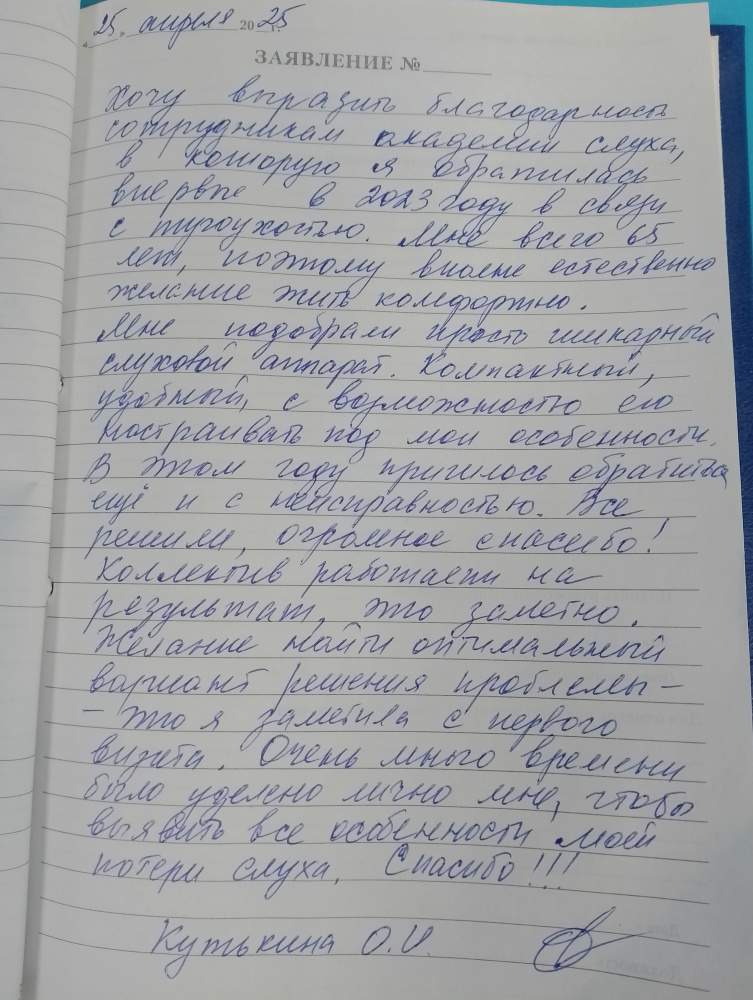 25. апреля 2025 г.
ЗАЯВЛЕНИЕ №
Хочу выразить благодарность
сотрудникам академии слуха,
в которую я обратилась
впервые в 2023 году в связи
с тугоухостью. Мне всего 65
лет, поэтому вполне естественно
желание жить комфортно.
Мне подобрали просто шикарный
слуховой аппарат. Компактный,
удобный, с возможностью его
настраивать под мои особенности.
В этом году пришлось обратиться
ещё и с неисправностью. Все
решили, огромное спасибо!
Коллектив работает на
результат, это заметно.
Желание найти оптимальный
вариант решения проблемы –
– это я заметила с первого
визита. Очень много времени
было уделено лично мне, чтобы
выявить все особенности моей
потери слуха. Спасибо!!!
Кутькина О.И.